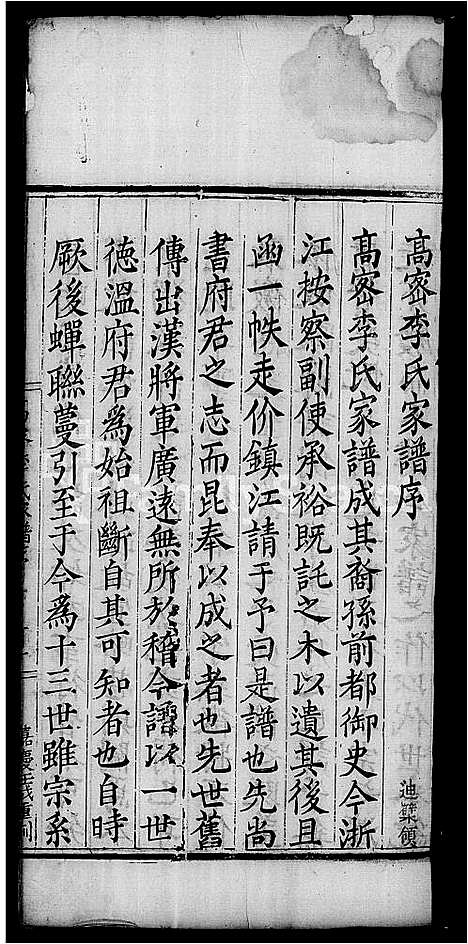 高密李氏家譜序
迪簗領
高密李氏家譜成其裔孫前都御史今浙
江按察副使承裕既託之木以遺其後且
函一帙走价鎮江請于予曰是譜也先尚
書府君之志而昆奉以成之者也先世舊
傳出漢將軍廣遠無所於稽今譜以一世
德溫府君爲始祖斷自其可知者也自時
厥後蟬聯蔓引至于今爲十三世雖宗系